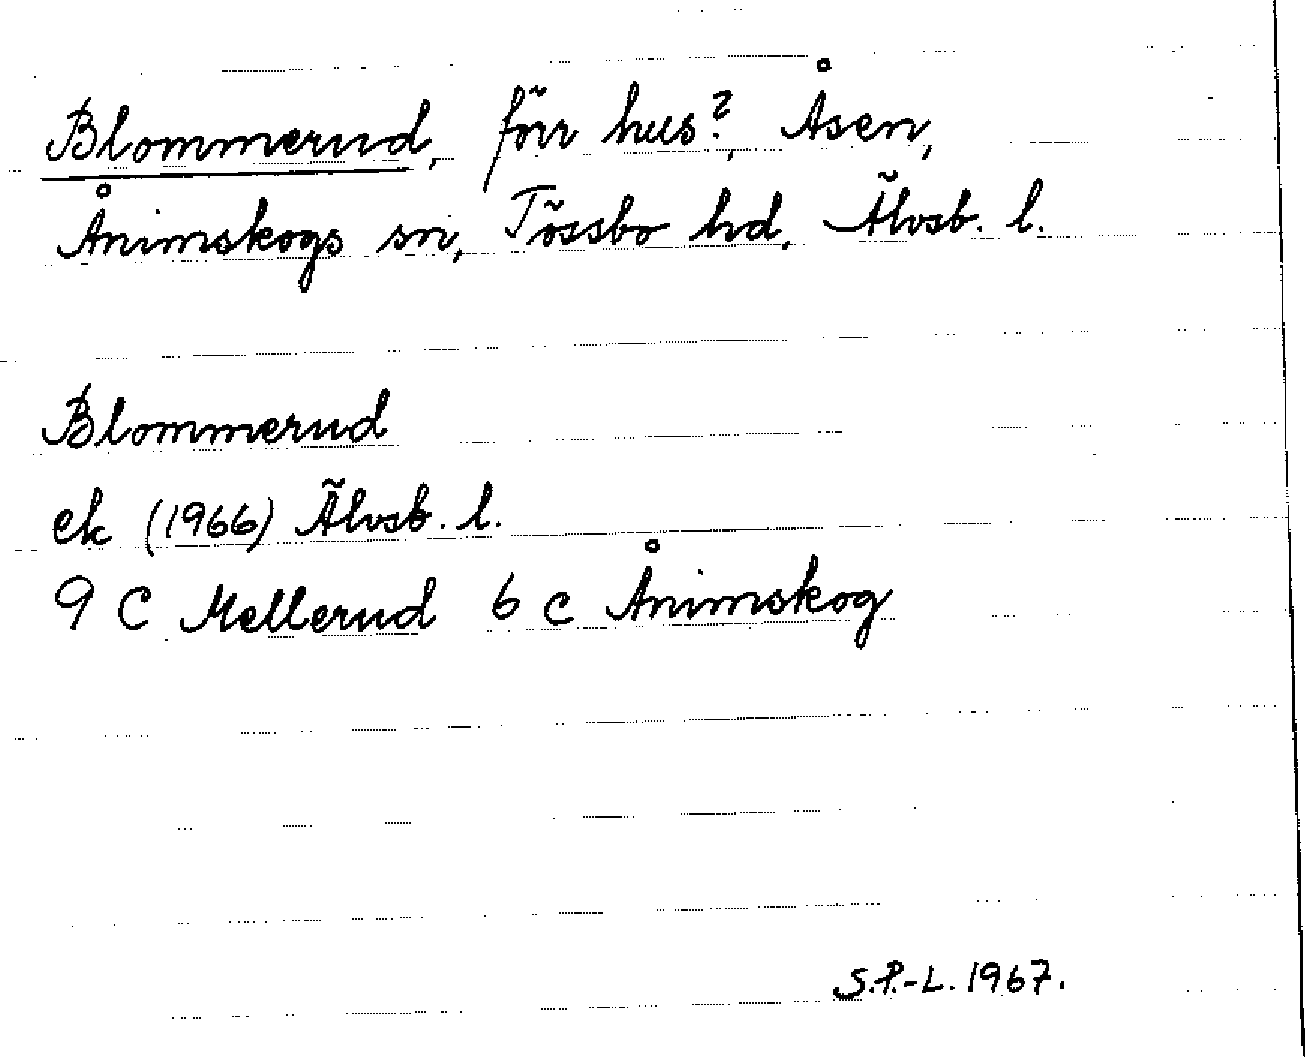 Blommerud, förr hus?, Åsen,
Ånimskogs sn, Tössbo hd, Älvsb. l.
Blommerud
ek (1966) Älvsb. l.
9 C Mellerud 6 c Ånimskog
S.P.-L. 1967.